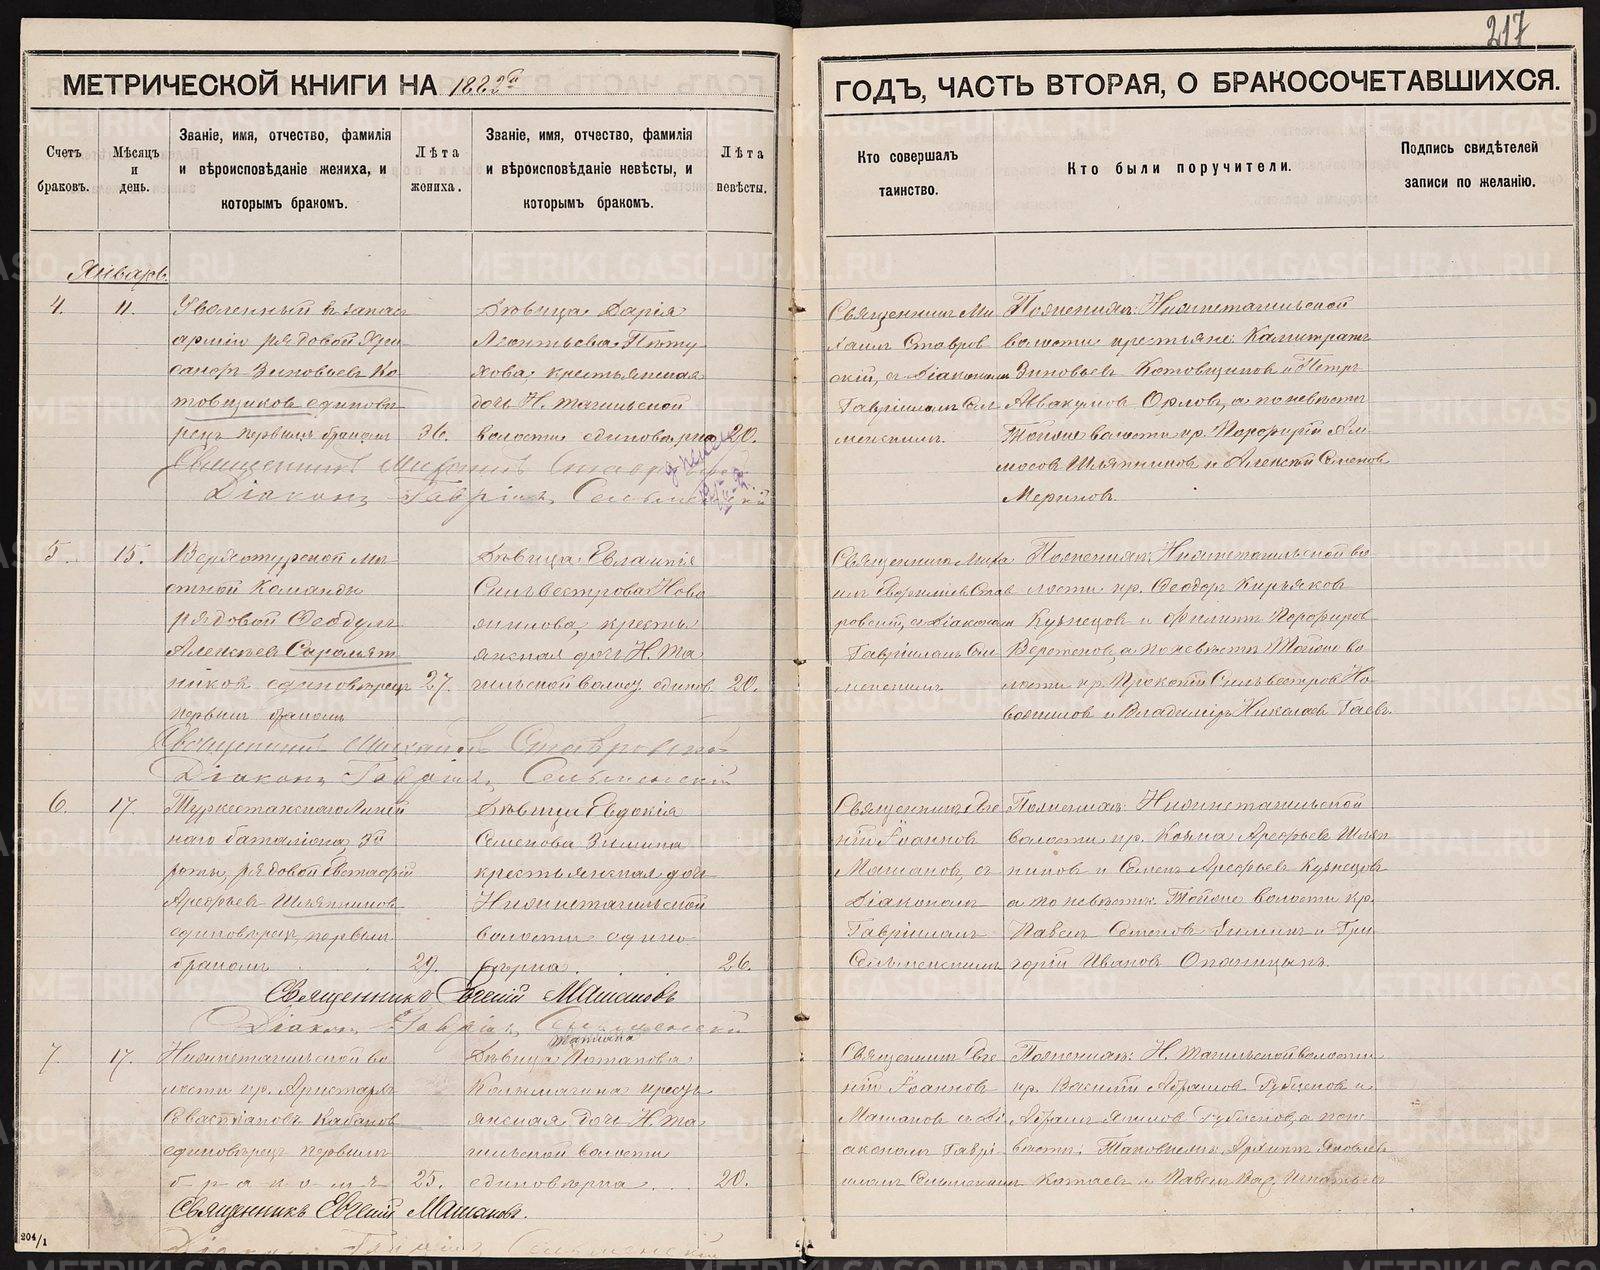 217
МЕТРИЧЕСКОЙ КНИГИ НА 1883й
ГОДЪ, ЧАСТЬ ВТОРАЯ, О БРАКОСОЧЕТАВШИХСЯ.
Счетъ браковъ.
Мѣсяцъ и день.
Званіе, имя, отчество, фамилія
и вѣроисповѣданіе жениха, и
которымъ бракомъ.
Лѣта жениха.
Званіе, имя, отчество, фамилія
и вѣроисповѣданіе невѣсты, и
которымъ бракомъ.
Лѣта невѣсты.
Кто совершалъ
таинство.
Кто были поручители.
Подпись свидѣтелей
записи по желанію.
Январь
4.
11.
Уволенный в запас
арміи рядовой
Зиновьевъ Ко
товщиковъ единовѣ
рецъ первымъ бракомъ
36.
Дѣвица Дарія
Леонтьева Пѣту
хова, крестьянская
дочь Н. Тагильской
волости единовѣрка
20.
Священникъ Ми
хаилъ Ставров
скій, съ Діакономъ
Гавріиломъ Сель
менскимъ
По женихѣ: Нижнетагильской
волости крестьяне: Калистратъ
Зиновьевъ Котовщиковъ и Петръ
Аввакумовъ Орловъ, а по невѣстѣ
Тойже волости кр. Порфирій Ам
мосовъ Шляпниковъ и Алексѣй Семеновъ
Мериновъ.
Священникъ Михаилъ Ставровской
Діаконъ Гавріилъ Сельменскій
5.
15.
Верхотурской мѣ
стной Команды
рядовой Ѳеодулъ
Алексѣевъ Сыромят
никовъ единовѣрецъ
первымъ бракомъ
27.
Дѣвица Евлампія
Сильвестрова Ново
жилова, кресть
янская дочь Н. Та
гильской волос. единов.
20.
Священникъ Миха
илъ Став
ровскій, съ Діакономъ
Гавріиломъ Сель
менскимъ
По женихѣ: Нижнетагильской во
лости кр. Ѳеодоръ Кирьяковъ
Кузнецовъ и Филиппъ Порфировъ
а по невѣстѣ Тойже во
лости кр. Прокопій Сильвестровъ Но
вожиловъ и Владиміръ Николаевъ Гаевъ.
Священникъ Михаилъ Ставровской
Діаконъ Гавріилъ Сельменскій
6.
17.
Туркестанскаго Линей
наго баталіона 3й
роты, рядовой Евстафій
Арефьевъ Шляпниковъ
единовѣрецъ, первымъ
бракомъ
29.
Дѣвица Евдокія
Семенова Зимина
крестьянская дочь
Нижнетагильской
волости едино
вѣрка
26.
Священникъ Евге
ній Іоанновъ
Машановъ, съ
Діакономъ
Гавріиломъ
Сельменскимъ
По женихѣ: Нижнетагильской
волости кр. Козма Арефьевъ Шляп
никовъ и Семенъ Арефьевъ Кузнецовъ
а по невѣстѣ: Тойже волости кр.
Павелъ Семеновъ Зиминъ и Гри
горій Ивановъ Опаницынъ.
Священникъ Евгеній Машановъ
Діаконъ Гавріилъ Сельменскій
7.
17.
Нижнетагильской во
лости кр. Аристархъ
Севастіановъ Кабановъ
единовѣрецъ первымъ
бракомъ
25.
Татіана
Дѣвица Потапова
Колмагина кресть
янская дочь Н. Та
гильской волости
единовѣрка
20.
Священникъ Евге
ній Іоанновъ
Машановъ съ Ді
акономъ Гаврі
иломъ Сельменскимъ
По женихѣ: Н. Тагильской волости
кр. Василій Абрамовъ Рубцовъ и
Абрамъ а по не
вѣстѣ: Таковыежъ Архипъ Яковлевъ
Катаевъ и Павелъ Игнатьевъ
Священникъ Евгеній Машановъ.
Діаконъ Гавріилъ Сельменскій
204/1
METRIKI.GASO-URAL.RU